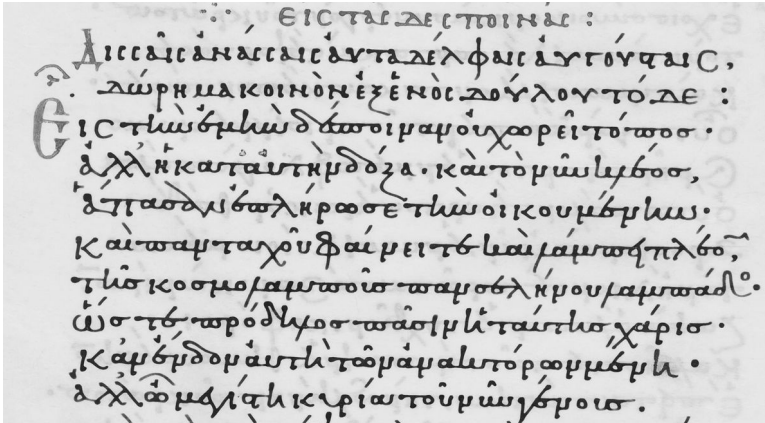 ΕΙΣ ΤΑΣ ΔΕΣΠΟΙΝΑΣ:
Δισσαῖς ἀνάσσαις αὐταδέλφαις αὐγούσταις,
δώρημα κοινὸν ἐξ ἑνὸς δούλου τόδε:
Εἰς τὴν ἐμὴν δέσποιναν οὐ χωρεῖ τόπος·
ἀλλ' ἡ κατ' αὐτὴν δόξα· καὶ τὸ νῦν κλέος,
ἅπασαν ἐπλήρωσε τὴν οἰκουμένην·
καὶ πανταχοῦ φαίνει τε καὶ λάμπει πλέον,
τῆς κοσμολαμποῦς πανσελήνου λαμπάδος·
ὥς τε πρόδηλος πᾶσιν ἡ ταύτης χάρις·
κἂν ἔνδον αὐτὴ τῶν ἀνακτόρων μένη·
ἀλλ' ὦ μεγίστη κυρία τοῦ νῦν γένους.